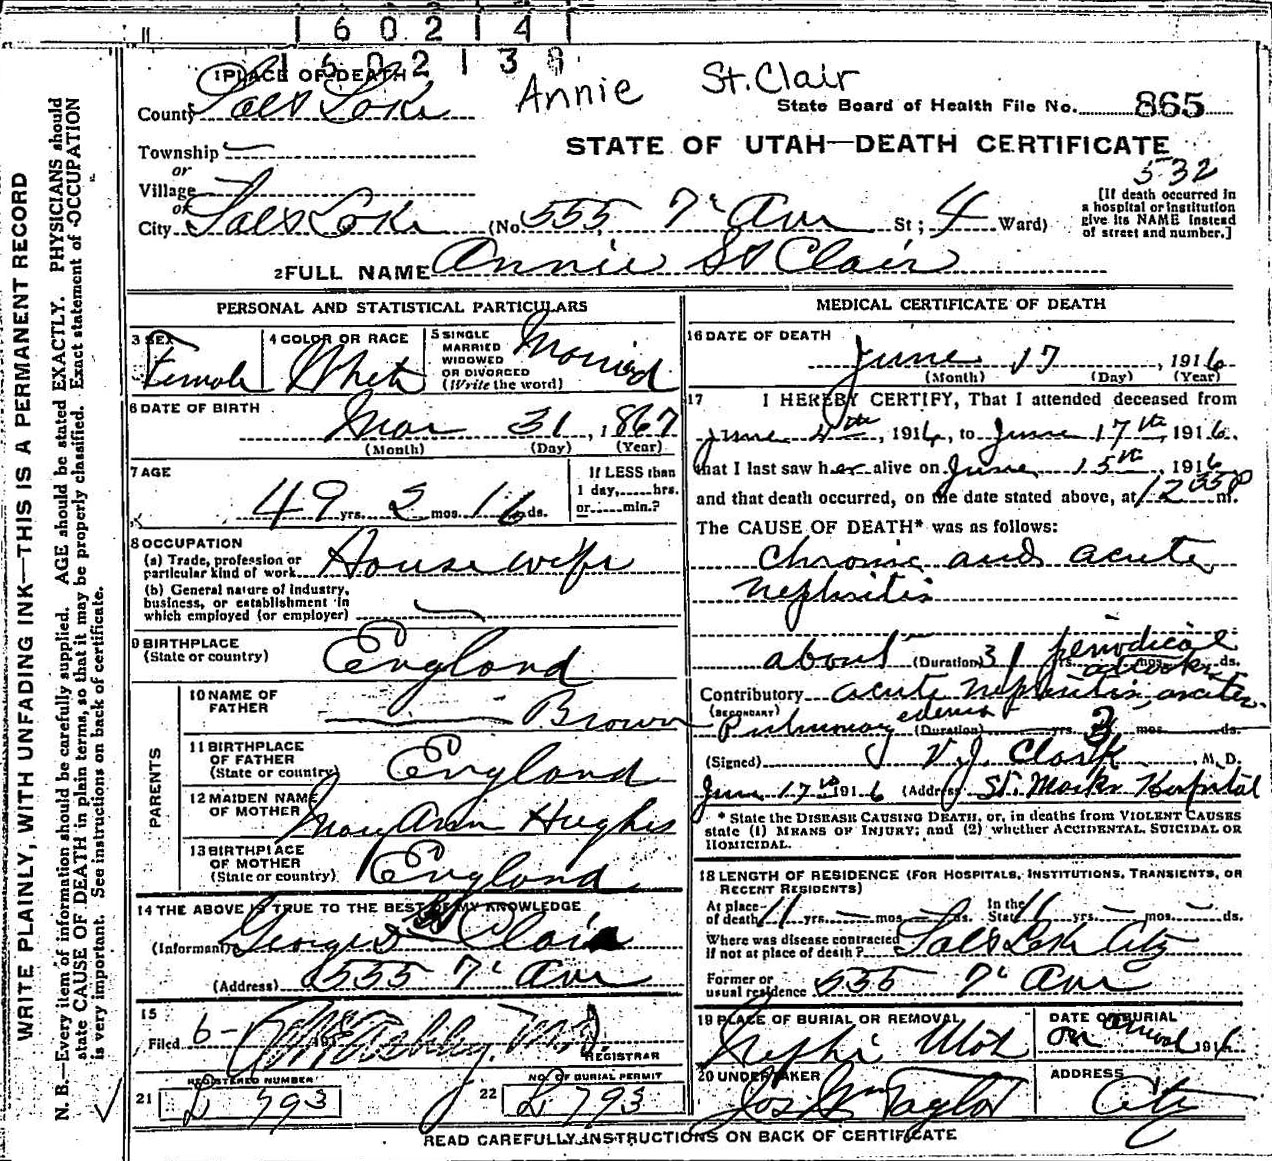 1 6 0 2 1 4 1
1 6 0 2 1 3 8
Annie St.Clair
1 PLACE OF DEATH
County Salt Lake
State Board of Health File No. 865
STATE OF UTAH—DEATH CERTIFICATE
Township
or
Village
or
City Salt Lake (No. 555, 7' Ave St; 4 Ward)
532
[If death occurred in
a hospital or institution
give its NAME instead
of street and number.]
2 FULL NAME Annie St Clair
WRITE PLAINLY, WITH UNFADING INK—THIS IS A PERMANENT RECORD
N. B.—Every item of information should be carefully supplied. AGE should be stated EXACTLY. PHYSICIANS should
state CAUSE OF DEATH in plain terms, so that it may be properly classified. Exact statement of OCCUPATION
is very important. See instructions on back of certificate.
PERSONAL AND STATISTICAL PARTICULARS
3 SEX
Female
4 COLOR OR RACE
White
5 SINGLE
MARRIED
WIDOWED
OR DIVORCED
(Write the word)
Married
6 DATE OF BIRTH
Mar 31, 1867
(Month) (Day) (Year)
7 AGE
49 yrs. 2 mos. 16 ds.
If LESS than
1 day, hrs.
or min.?
8 OCCUPATION
(a) Trade, profession or
particular kind of work
House wife
(b) General nature of industry,
business, or establishment in
which employed (or employer)
9 BIRTHPLACE
(State or country)
England
PARENTS
10 NAME OF
FATHER
Brown
11 BIRTHPLACE
OF FATHER
(State or country)
England
12 MAIDEN NAME
OF MOTHER
Mary Ann Hughes
13 BIRTHPLACE
OF MOTHER
(State or country)
England
14 THE ABOVE IS TRUE TO THE BEST OF MY KNOWLEDGE
(Informant) George St Clair
(Address) 555 7' Ave
15
Filed 6- 191
M.D.
REGISTRAR
REGISTERED NUMBER
21 L 793
NO. OF BURIAL PERMIT
22 L 793
MEDICAL CERTIFICATE OF DEATH
16 DATE OF DEATH
June 17, 1916
(Month) (Day) (Year)
17 I HEREBY CERTIFY, That I attended deceased from
June 4th, 1916, to June 17th, 1916.
that I last saw her alive on June 15th, 1916
and that death occurred, on the date stated above, at 12 35 P m.
The CAUSE OF DEATH* was as follows:
Chronic and acute
nephritis
about (Duration) 31 yrs. mos. ds.
periodical
attacks
Contributory acute nephritis, acute
(SECONDARY)
Pulmonary edema (Duration) yrs. mos. ds.
(Signed) V. J. Clark, M. D.
June 17th 1916 (Address) St. Marks Hospital
* State the DISEASE CAUSING DEATH, or, in deaths from VIOLENT CAUSES
state (1) MEANS OF INJURY; and (2) whether ACCIDENTAL, SUICIDAL OR
HOMICIDAL.
18 LENGTH OF RESIDENCE (FOR HOSPITALS, INSTITUTIONS, TRANSIENTS, OR
RECENT RESIDENTS)
At place
of death 11 yrs. mos. ds.
In the
State 16 yrs. mos. ds.
Where was disease contracted
if not at place of death? Salt Lake City
Former or
usual residence 555 7' Ave
19 PLACE OF BURIAL OR REMOVAL
Nephi Utah
DATE OF BURIAL
on arrival 1916
20 UNDERTAKER
Jos Wm Taylor
ADDRESS
City
READ CAREFULLY INSTRUCTIONS ON BACK OF CERTIFICATE